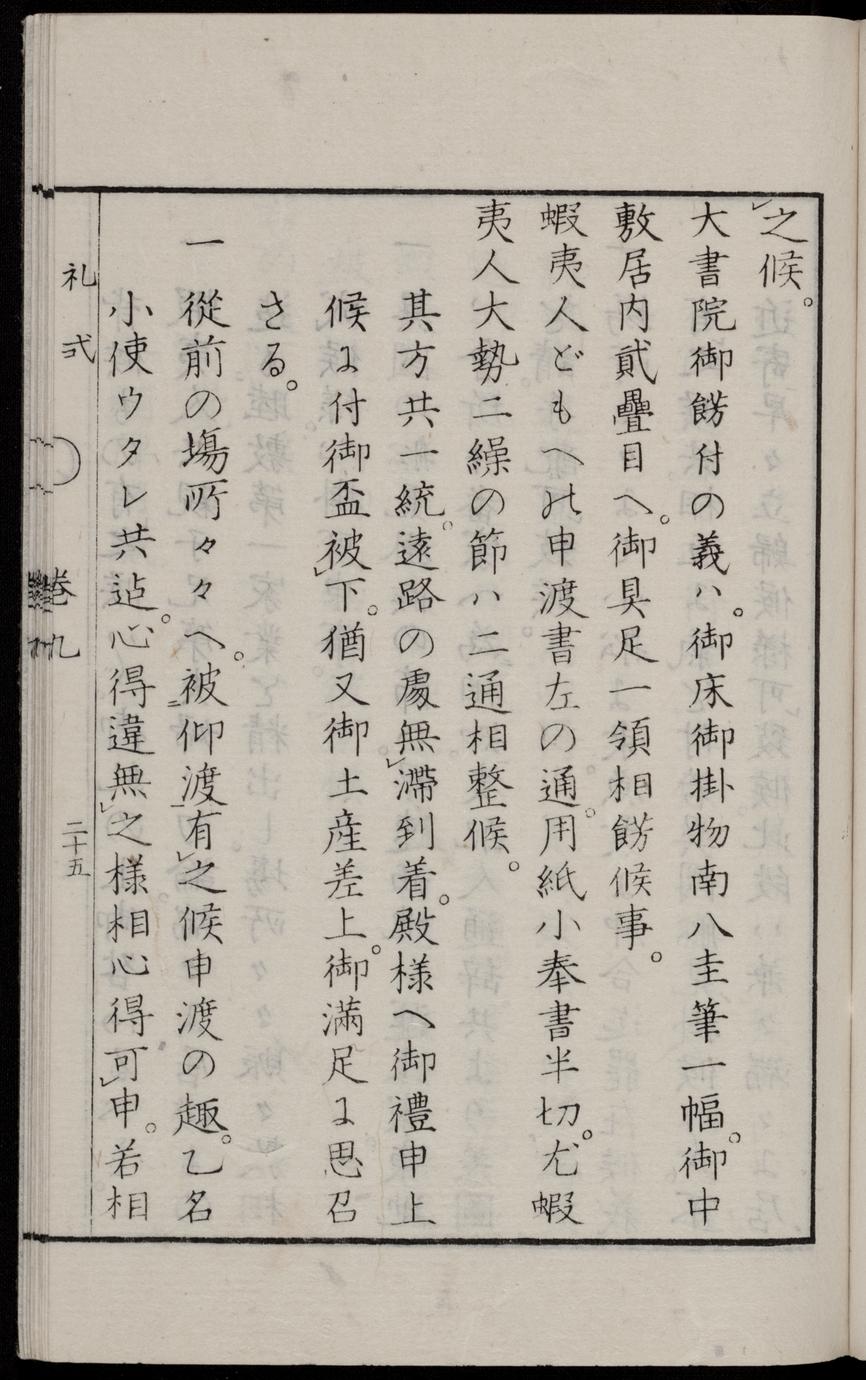 之候。
大書院御餝付の義ハ。御床御掛物南八圭筆一幅。御中
敷居内貳疊目へ。御具足一領相餝候事。
蝦夷人どもへ之申渡書左の通。用紙小奉書半切。尤蝦
夷人大勢二繰の節ハ二通相整候。
其方共一統。遠路の處無滯到着。殿様へ御禮申上
候に付御盃被下。猶又御土産差上。御滿足に思召
さる。
一從前の場所々々へ。被仰渡有之候申渡の趣。乙名
小使ウタレ共迠。心得違無之様相心得可申。若相
礼式
巻九
二十五